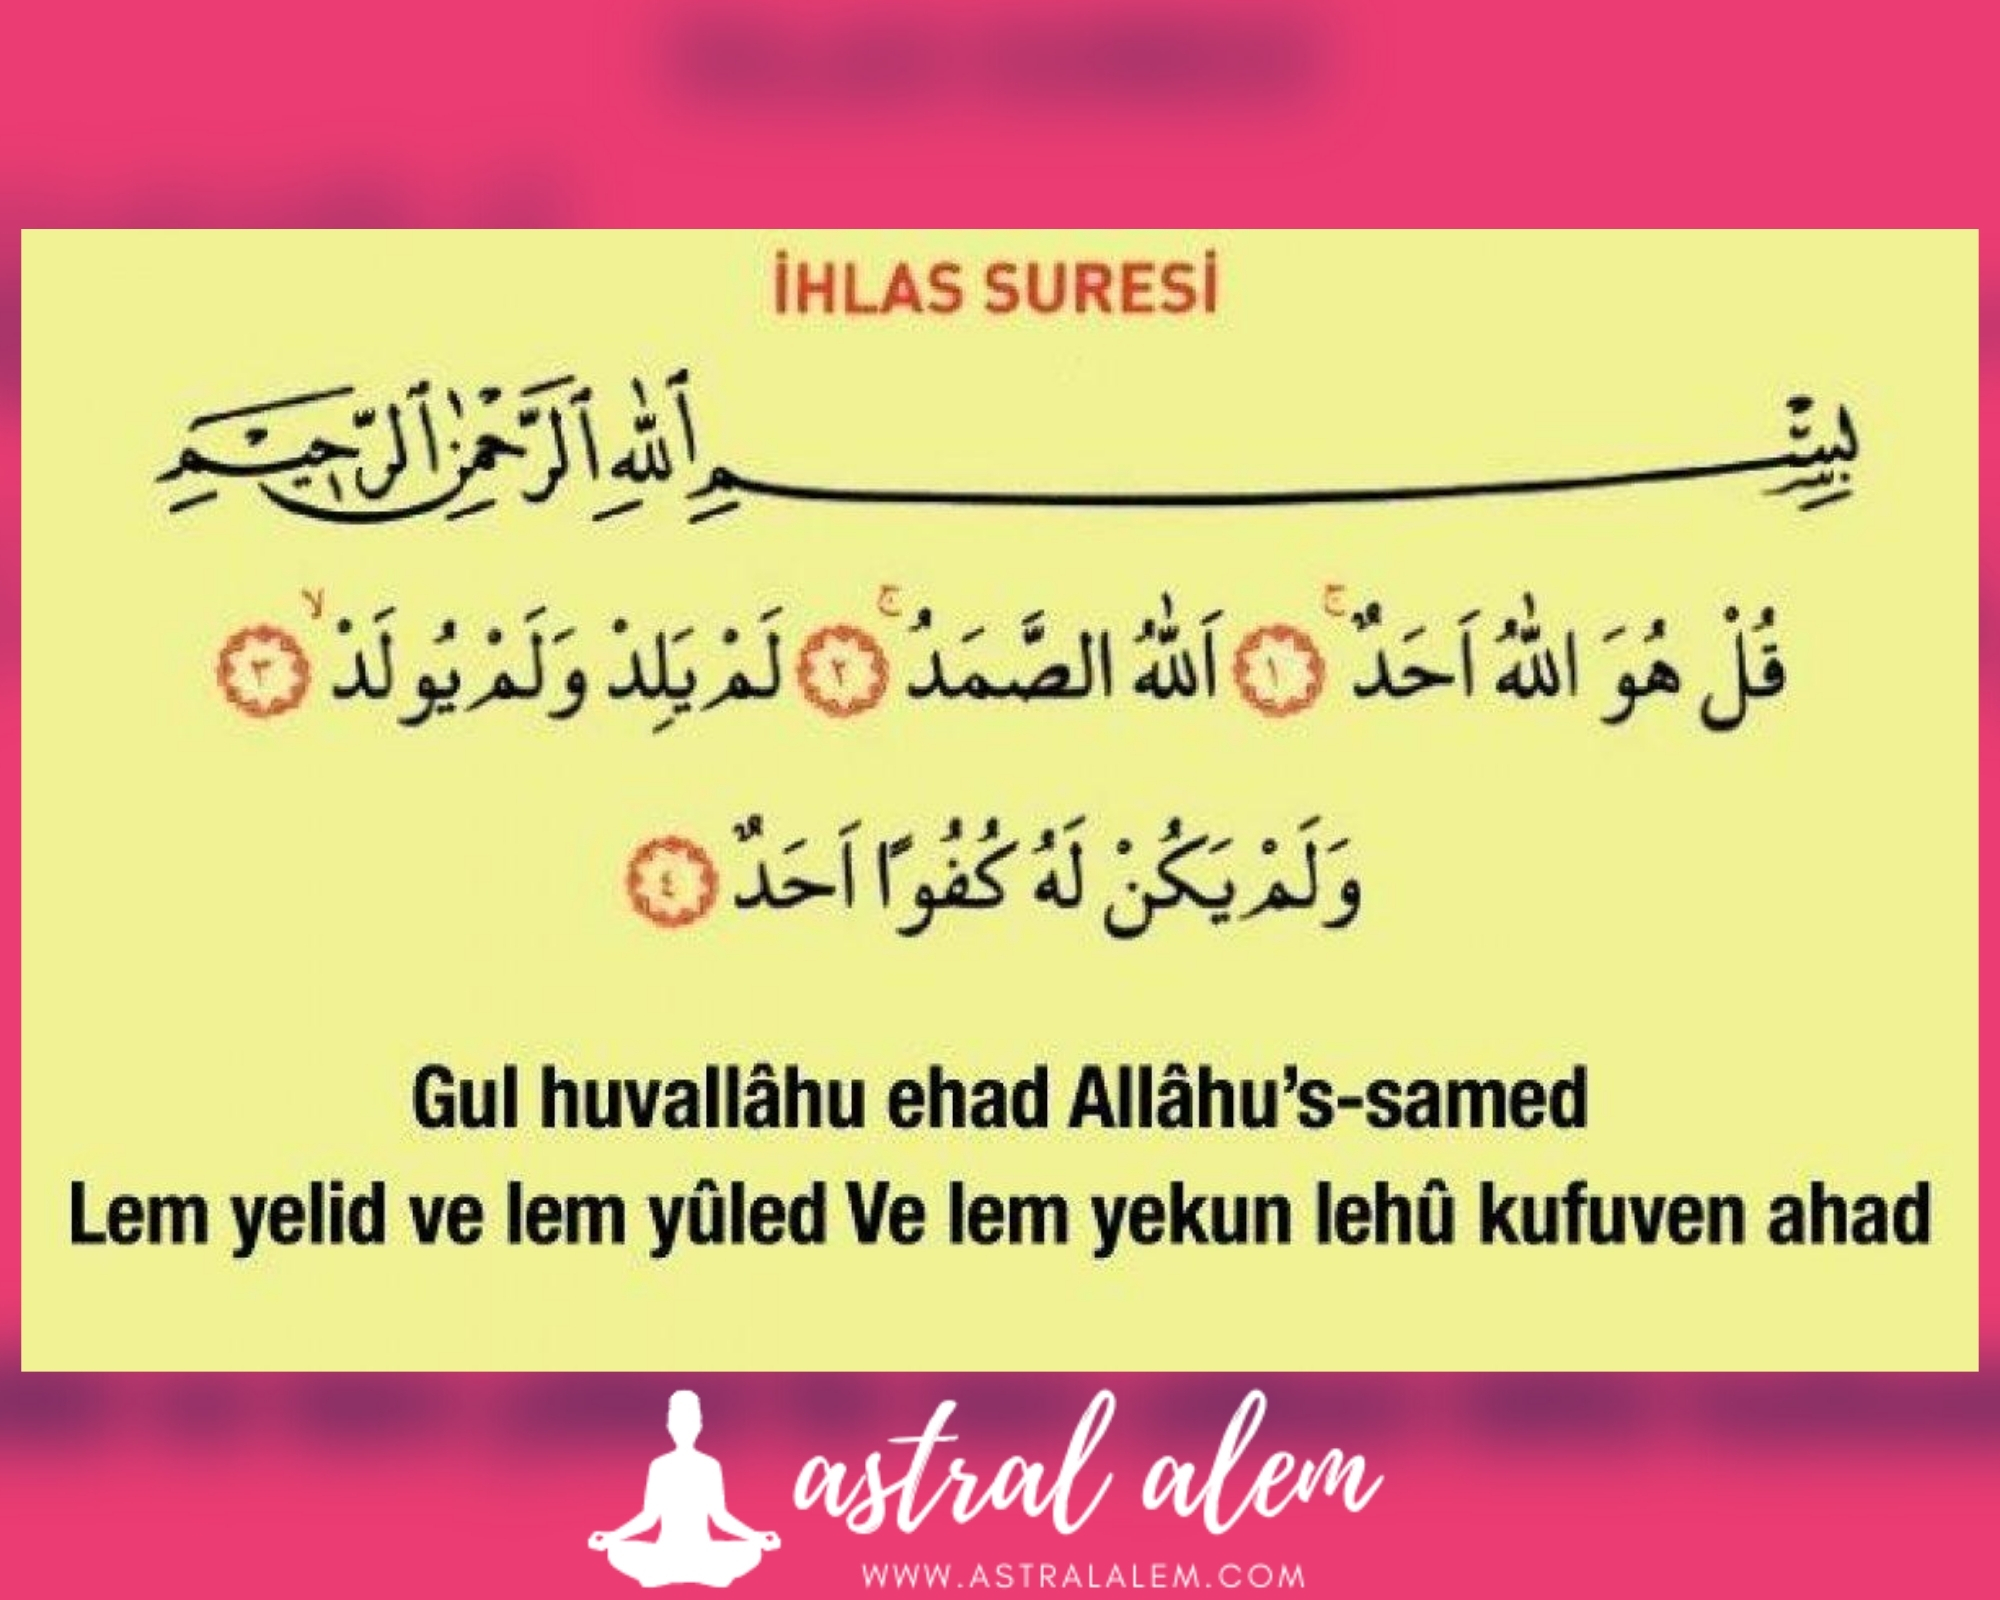 İHLAS SURESİ
بِسْمِ ٱللّٰهِ ٱلرَّحْمٰنِ ٱلرَّحِيمِ
قُلْ هُوَ اللّٰهُ اَحَدٌۚ ﴿١﴾ اَللّٰهُ الصَّمَدُۚ ﴿٢﴾ لَمْ يَلِدْ وَلَمْ يُولَدْۙ ﴿٣﴾
وَلَمْ يَكُنْ لَهُ كُفُوًا اَحَدٌ ﴿٤﴾
Gul huvallâhu ehad Allâhu’s-samed
Lem yelid ve lem yûled Ve lem yekun lehû kufuven ahad
astral alem
WWW.ASTRALALEM.COM